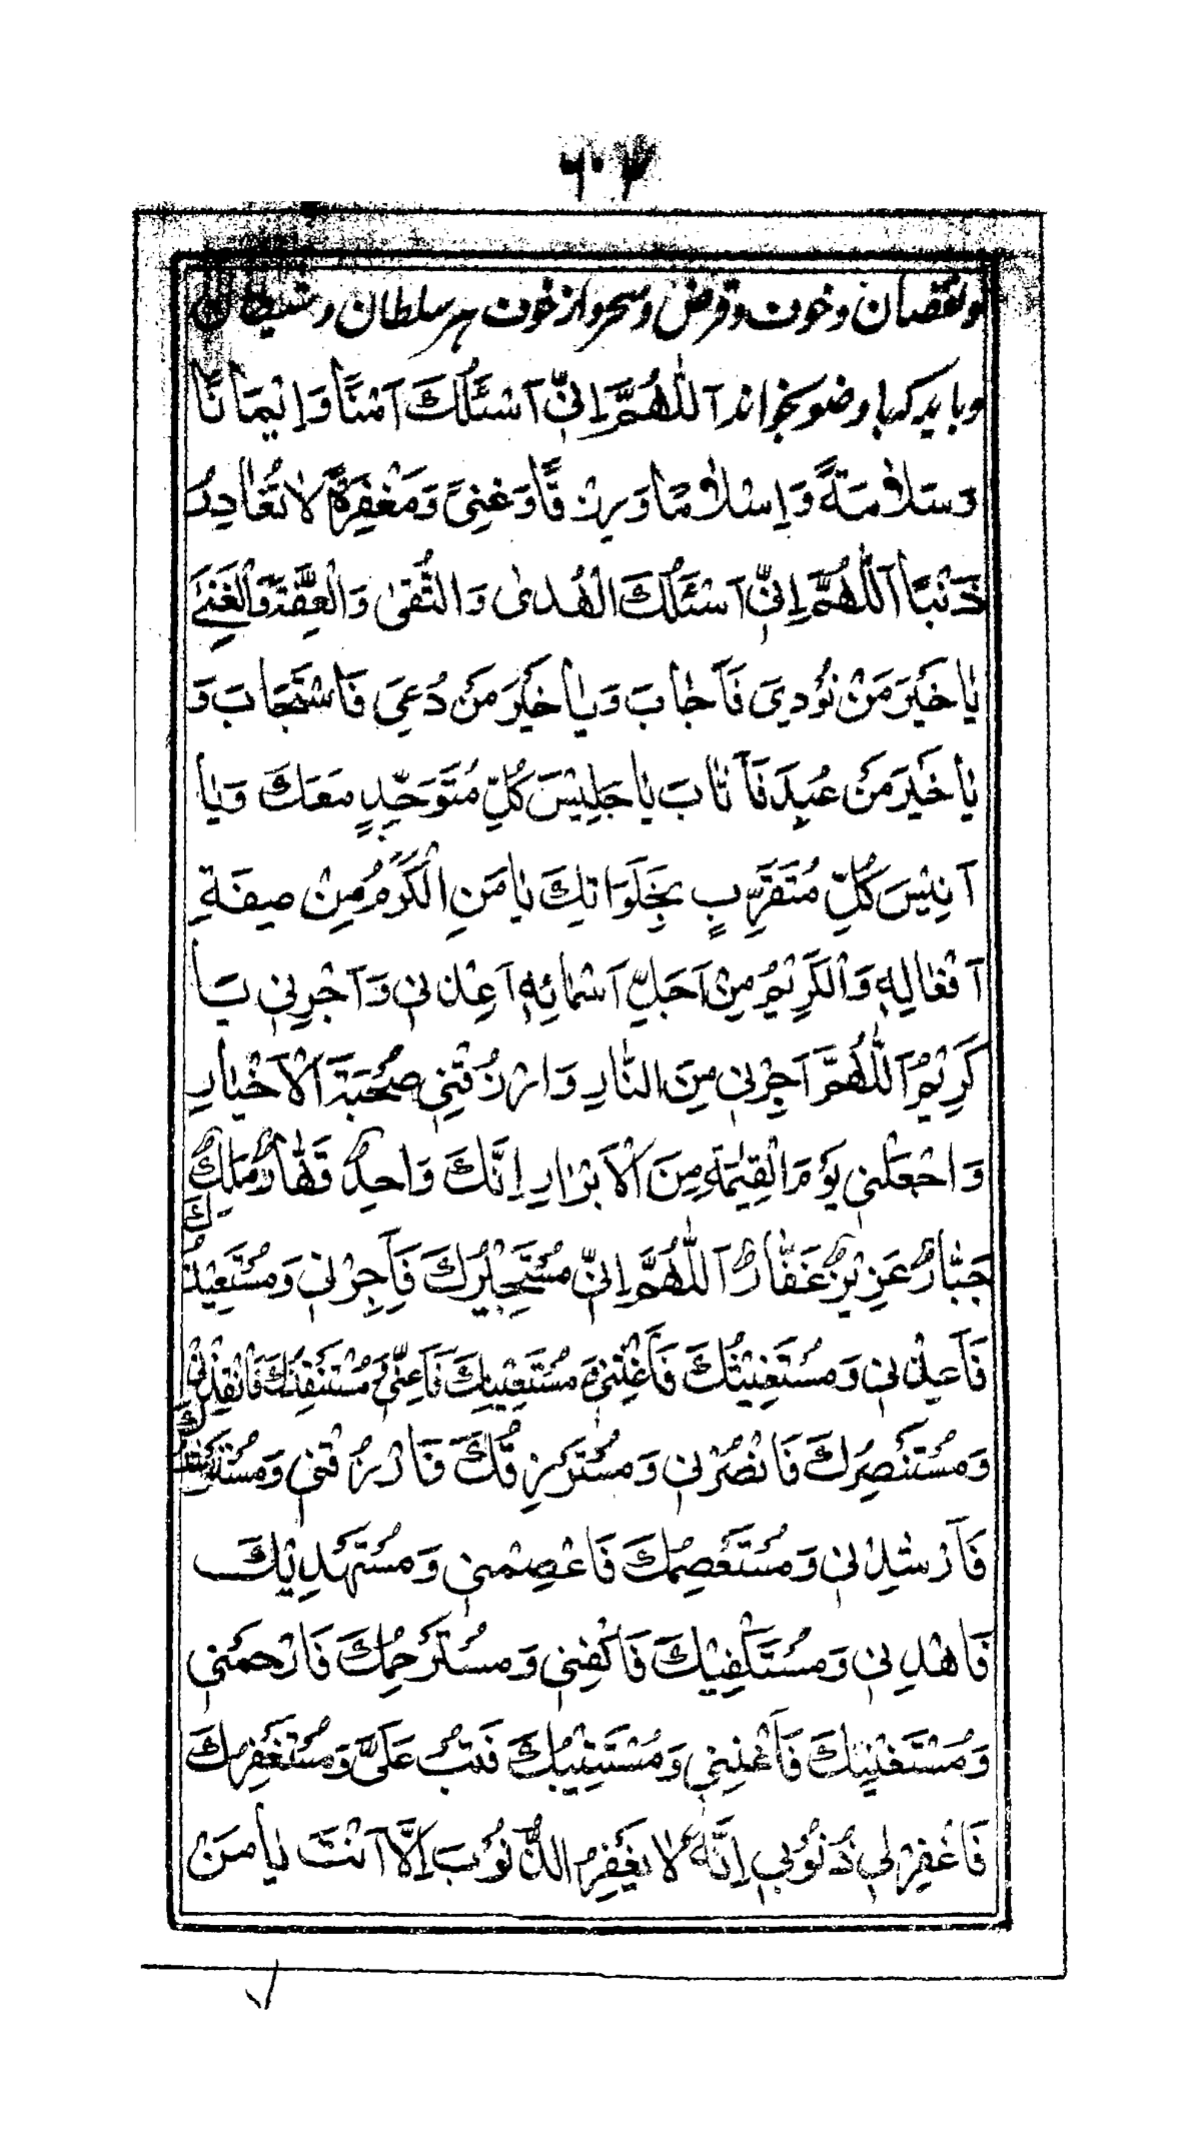 ۶۰۳
و نقصان و خون و قرض و سحر و از خون هر سلطان و شیطان
و باید که با وضو بخواند اَللّٰهُمَّ اِنّیِ اَسْئَلُكَ اَمْنًا وَ اِیْمَانًا
وَ سَلاٰمَةً وَ اِسْلاٰمًا وَ رِزْقًا وَ غِنیً وَ مَغْفِرَةً لاٰ تُغٰادِرُ
ذَنْبًا اَللّٰهُمَّ اِنّیِ اَسْئَلُكَ الْهُدیٰ وَ التُّقیٰ وَ الْعِفَّةَ وَ الْغَنِیَ
یٰا خَیْرَ مَنْ نُوْدِیَ فَاَجٰابَ وَ یٰا خَیْرَ مَنْ دُعِیَ فَاسْتَجٰابَ وَ
یٰا خَیْرَ مَنْ عُبِدَ فَاَثٰابَ یٰا جَلِیْسَ كُلِّ مُتَوَحِّدٍ مَعَكَ وَ یٰا
اَنِیْسَ كُلِّ مُتَقَرِّبٍ بِخَلَوَاتِكَ یٰا مَنِ الْكَرَمُ مِنْ صِفَةِ
اَفْعٰالِهٖ وَ الْكَرِیْمُ مِنْ اَجَلِّ اَسْمٰائِهٖ اَعِذْنیِ وَ اَجْرِنیِ یَا
كَرِیْمُ اَللّٰهُمَّ اَجِرْنیِ مِنَ النّٰارِ وَ ارْزُقْنیِ صُحْبَةَ الْاَخْیٰارِ
وَ اجْعَلْنیِ یَوْمَ الْقِیٰمَةِ مِنَ الْاَبْرٰارِ اِنَّكَ وَاحِدٌ قَهّٰارٌ مَلِكٌ
جَبّٰارٌ عَزِیْزٌ غَفّٰارٌ اَللّٰهُمَّ اِنّیِ مُسْتَجِیْرُكَ فَاَجِرْنیِ وَ مُسْتَعِیْذُكَ
فَاَعِذْنیِ وَ مُسْتَغِیْثُكَ فَاَغِثْنیِ وَ مُسْتَعِیْنُكَ فَاَعِنّیِ وَ مُسْتَنْقِذُكَ فَانْقِذْنیِ
وَ مُسْتَنْصِرُكَ فَانْصُرْنیِ وَ مُسْتَرْزِقُكَ فَارْزُقْنیِ وَ مُسْتَرْشِدُكَ
فَاَرْشِدْنیِ وَ مُسْتَعْصِمُكَ فَاعْصِمْنیِ وَ مُسْتَهْدِیْكَ
فَاهْدِنیِ وَ مُسْتَكْفِیْكَ فَاكْفِنیِ وَ مُسْتَرْحِمُكَ فَارْحَمْنیِ
وَ مُسْتَغْنِیْكَ فَاَغْنِنیِ وَ مُسْتَتِیْبُكَ فَتُبْ عَلَیَّ وَ مُسْتَغْفِرُكَ
فَاغْفِرْ لیِ ذُنُوْبیِ اِنَّهٗ لاٰ یَغْفِرُ الذُّنُوْبَ اِلَّا اَنْتَ یٰا مَنْ